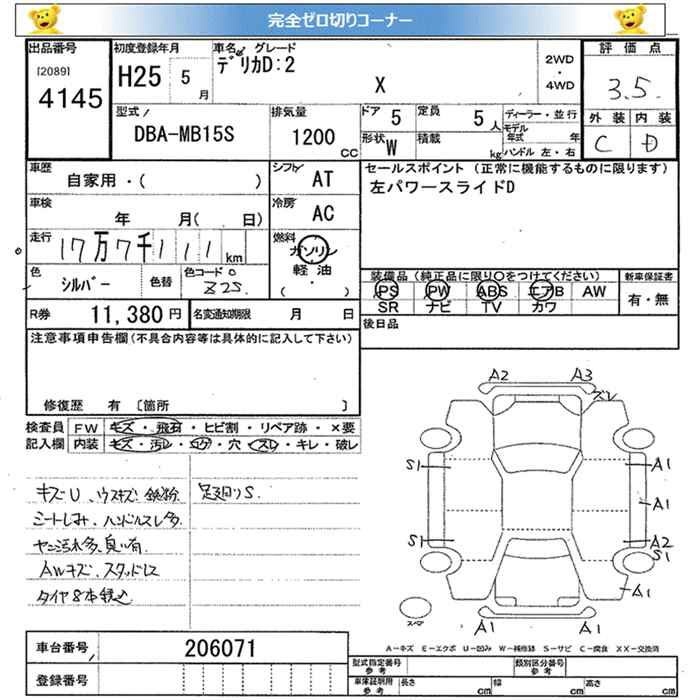 完全ゼロ切りコーナー
出品番号 初度登録年月 車名 グレード 評価点
[2089] 4145 H25 5月 デリカD:2 X 2WD・4WD 3.5
型式 排気量 ドア 5 定員 5人 ディーラー・並行 外装 内装
DBA-MB15S 1200cc 形状 W 積載 kg モデル年式 年 ハンドル 左・右 C D
車歴 自家用・( ) シフト AT セールスポイント (正常に機能するものに限ります)
車検 年 月( 日) 冷房 AC 左パワースライドD
走行 17万7千111km 燃料 ガソリン 軽油 ( ・ )
色 シルバー 色替 色コード Z2S 装備品 (純正品に限り○をつけてください) 新車保証書
PS PW ABS エアB AW 有・無
R券 11,380円 名変通知期限 月 日 SR ナビ TV カワ
注意事項申告欄(不具合内容等は具体的に記入して下さい) 後日品
修復歴 有 〔箇所 〕
検査員 FW キズ・飛石・ヒビ割・リペア跡・×要
記入欄 内装 キズ・汚レ・コゲ・穴・スレ・キレ・破レ
キズU、ウスキズ、鉄粉 足廻りS.
シートしみ、ハンドルスレ多
ヤニ汚れ多、臭い有
AWキズ、スタッドレス
タイヤ8本積込
A2 A3
スレ
S1 A1
A1
S1 A2
S1
A1
スペア A1 A1
A-キズ E-エクボ U-凹み W-補修跡 S-サビ C-腐食 XX-交換済
車台番号 206071 型式指定番号 参考 類別区分番号 参考
登録番号 車庫証明用 参考 長さ cm 幅 cm 高さ cm